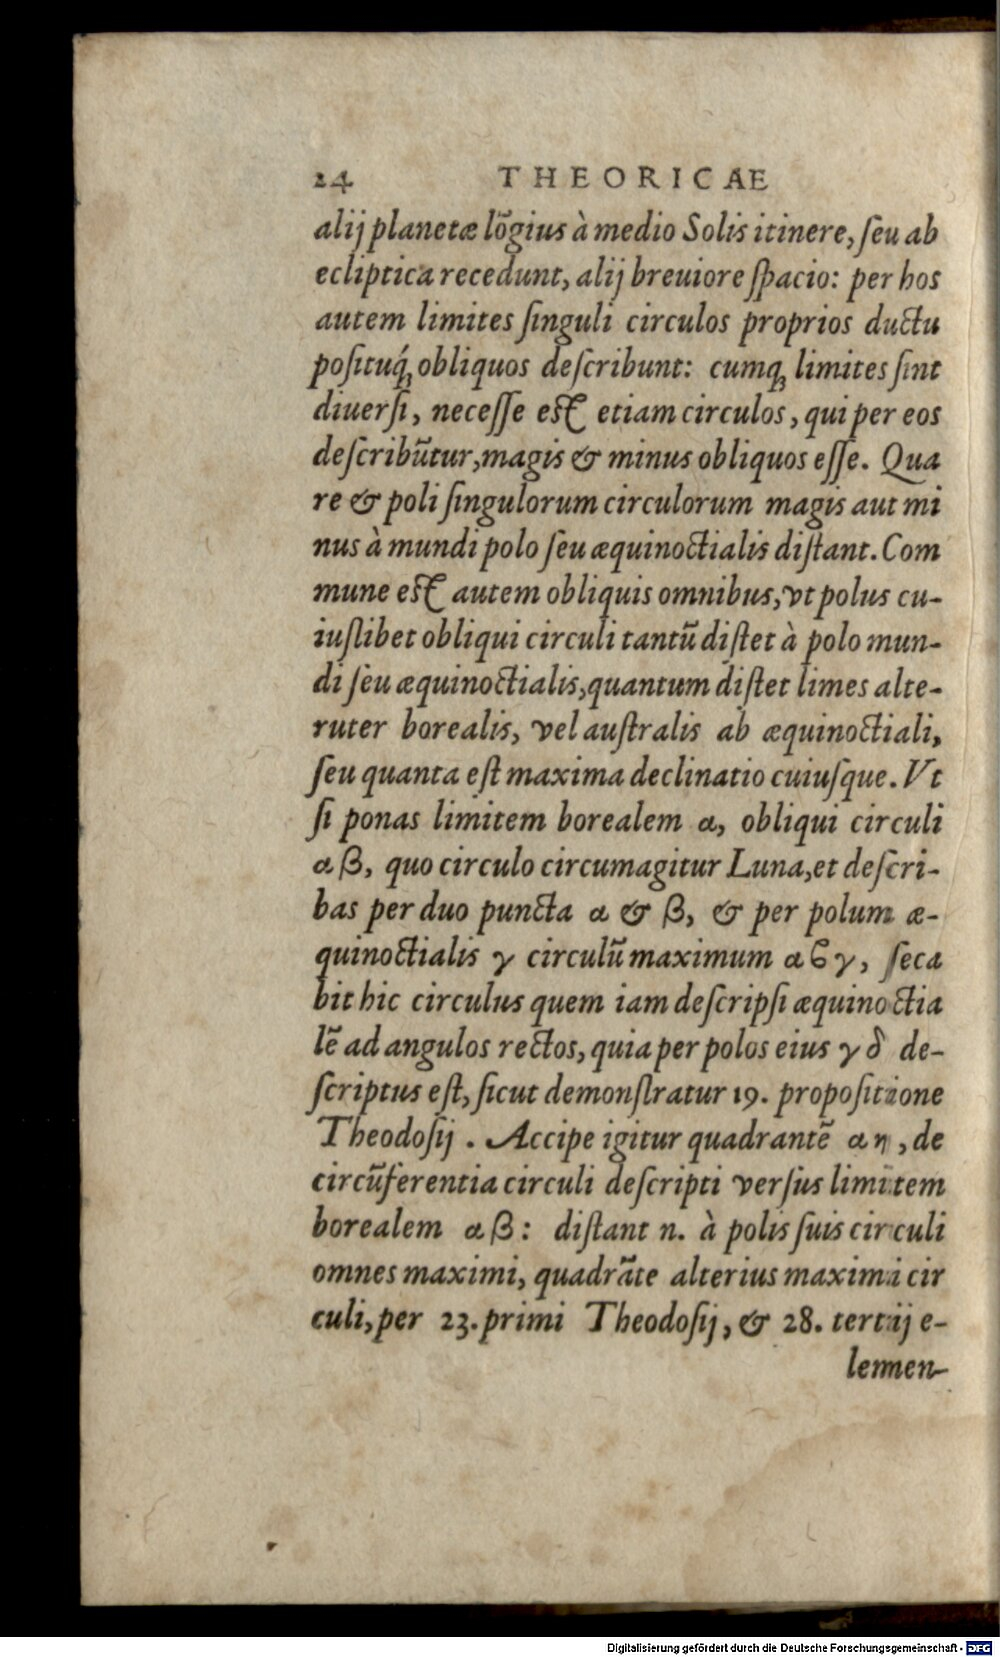 24 THEORICAE
alij planetæ lõgius à medio Solis itinere, ſeu ab
ecliptica recedunt, alij breuiore ſpacio: per hos
autem limites ſinguli circulos proprios ductu
poſituq́ꝫ obliquos deſcribunt: cumqꝫ limites ſint
diuerſi, neceſſe eſt etiam circulos, qui per eos
deſcribũtur, magis & minus obliquos eſſe. Qua
re & poli ſingulorum circulorum magis aut mi
nus à mundi polo ſeu æquinoctialis diſtant. Com
mune eſt autem obliquis omnibus, vt polus cu-
iuſlibet obliqui circuli tantũ diſtet à polo mun-
di ſeu æquinoctialis, quantum diſtet limes alte-
ruter borealis, vel auſtralis ab æquinoctiali,
ſeu quanta eſt maxima declinatio cuiuſque. Vt
ſi ponas limitem borealem α, obliqui circuli
α β, quo circulo circumagitur Luna, et deſcri-
bas per duo puncta α & β, & per polum æ-
quinoctialis γ circulũ maximum α ϐ γ, ſeca
bit hic circulus quem iam deſcripſi æquinoctia
lẽ ad angulos rectos, quia per polos eius γ δ de-
ſcriptus eſt, ſicut demonſtratur 19. propoſitione
Theodoſij. Accipe igitur quadrantẽ α η, de
circũferentia circuli deſcripti verſus limitem
borealem α β: diſtant n. à polis ſuis circuli
omnes maximi, quadrãte alterius maximi cir
culi, per 23. primi Theodoſij, & 28. tertij e-
lemen-
Digitalisierung gefördert durch die Deutsche Forschungsgemeinschaft - DFG